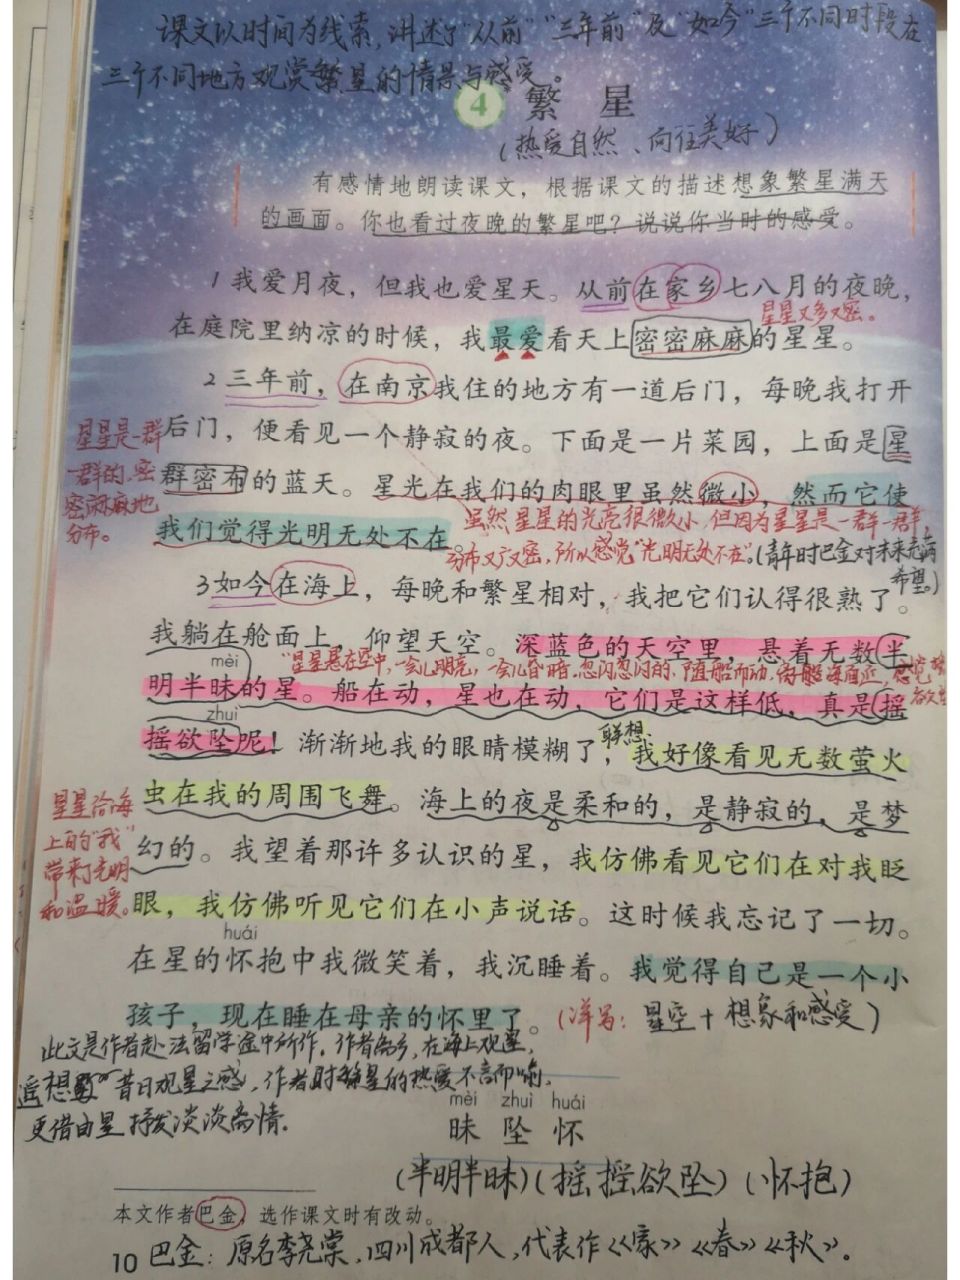 课文以时间为线索,讲述了“从前”“三年前”及“如今”三个不同时段在
三个不同地方观赏繁星的情景与感受。
4 繁星
(热爱自然、向往美好)
有感情地朗读课文，根据课文的描述想象繁星满天
的画面。你也看过夜晚的繁星吧？说说你当时的感受。
1 我爱月夜，但我也爱星天。从前在家乡七八月的夜晚，
星星又多又密。
在庭院里纳凉的时候，我最爱看天上密密麻麻的星星。
2 三年前，在南京我住的地方有一道后门，每晚我打开
后门，便看见一个静寂的夜。下面是一片菜园，上面是星
群密布的蓝天。星光在我们的肉眼里虽然微小，然而它使
我们觉得光明无处不在
星星是一群
一群的,密
密麻麻地
分布。
虽然星星的光亮很微小,但因为星星是一群一群,
分布又广又密,所以感觉“光明无处不在”。(青年时巴金对未来充满
希望。)
3 如今在海上，每晚和繁星相对，我把它们认得很熟了。
我躺在舱面上，仰望天空。深蓝色的天空里，悬着无数半
mèi
“星星悬在空中,一会儿明亮,一会儿昏暗,忽闪忽闪的,随船而动,
明半昧的星。船在动，星也在动，它们是这样低，真是摇
zhuì
摇欲坠呢！渐渐地我的眼睛模糊了，我好像看见无数萤火
联想
虫在我的周围飞舞。海上的夜是柔和的，是静寂的，是梦
幻的。我望着那许多认识的星，我仿佛看见它们在对我眨
眼，我仿佛听见它们在小声说话。这时候我忘记了一切。
星星给海
上的“我”
带来光明
和温暖。
huái
在星的怀抱中我微笑着，我沉睡着。我觉得自己是一个小
孩子，现在睡在母亲的怀里了。(详写：星空+想象和感受)
此文是作者赴法留学途中所作,作者离乡,在海上观星,
遥想 昔日观星之感,作者对繁星的热爱不言而喻,
更借由星抒发淡淡离情.
mèi zhuì huái
昧 坠 怀
(半明半昧)(摇摇欲坠)(怀抱)
本文作者巴金，选作课文时有改动。
10 巴金：原名李尧棠,四川成都人,代表作《家》《春》《秋》。